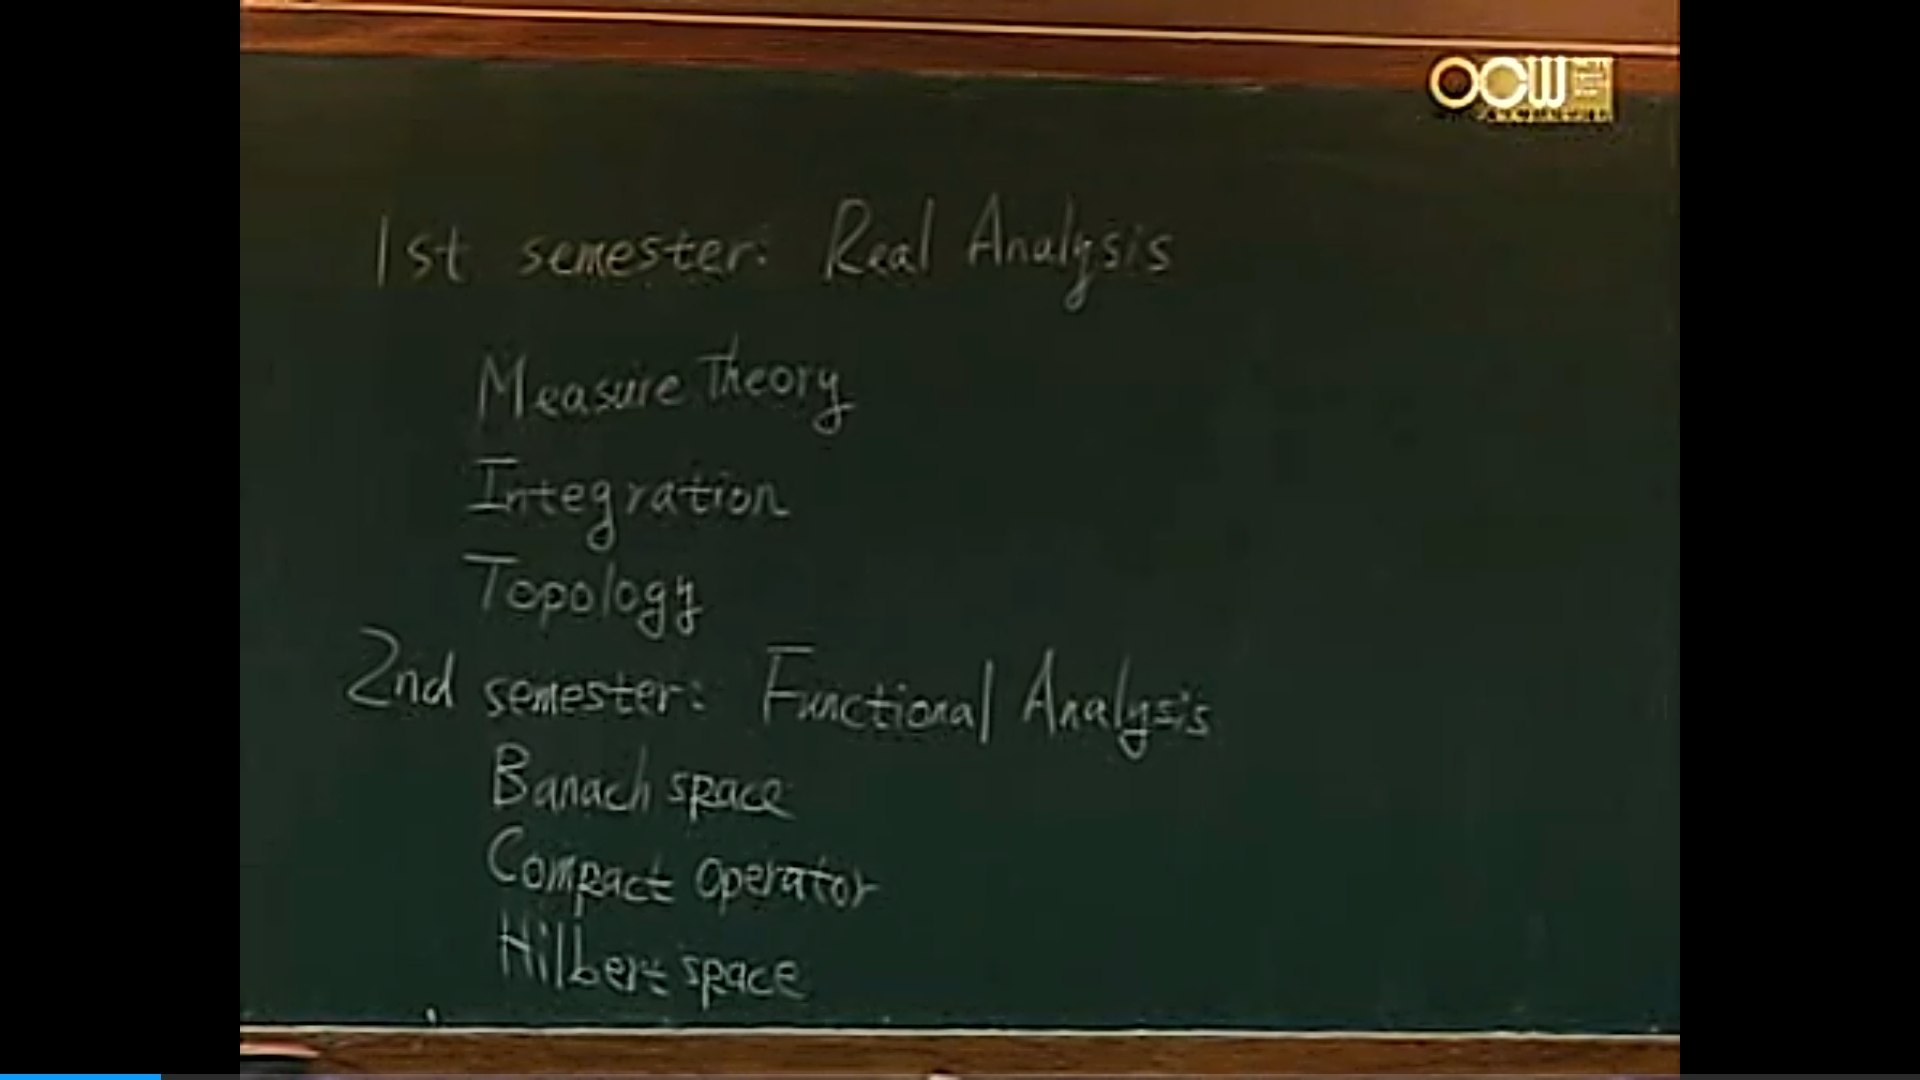 OCW
1st semester: Real Analysis
Measure Theory
Integration
Topology
2nd semester: Functional Analysis
Banach space
Compact operator
Hilbert space